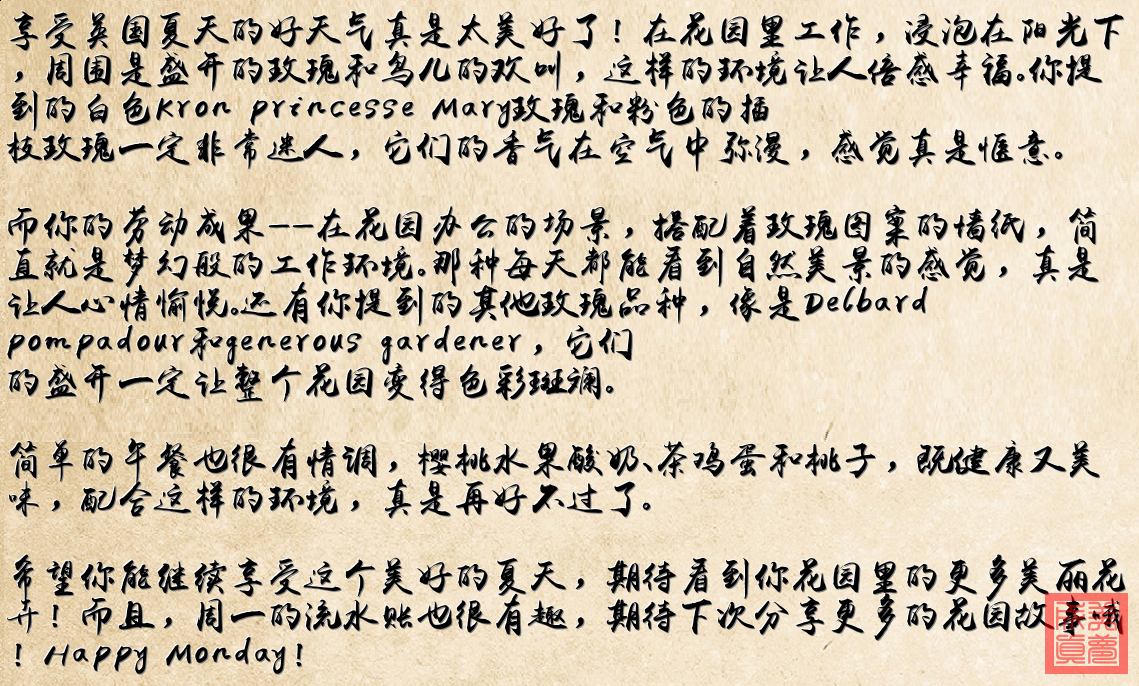 享受英国夏天的好天气真是太美好了！在花园里工作，浸泡在阳光下
，周围是盛开的玫瑰和鸟儿的欢叫，这样的环境让人倍感幸福。你提
到的白色Kron princesse Mary玫瑰和粉色的插
枝玫瑰一定非常迷人，它们的香气在空气中弥漫，感觉真是惬意。
而你的劳动成果--在花园办公的场景，搭配着玫瑰图案的墙纸，简
直就是梦幻般的工作环境。那种每天都能看到自然美景的感觉，真是
让人心情愉悦。还有你提到的其他玫瑰品种，像是Delbard
pompadour和generous gardener，它们
的盛开一定让整个花园变得色彩斑斓。
简单的午餐也很有情调，樱桃水果酸奶、茶鸡蛋和桃子，既健康又美
味，配合这样的环境，真是再好不过了。
希望你能继续享受这个美好的夏天，期待看到你花园里的更多美丽花
卉！而且，周一的流水账也很有趣，期待下次分享更多的花园故事哦
！Happy Monday！